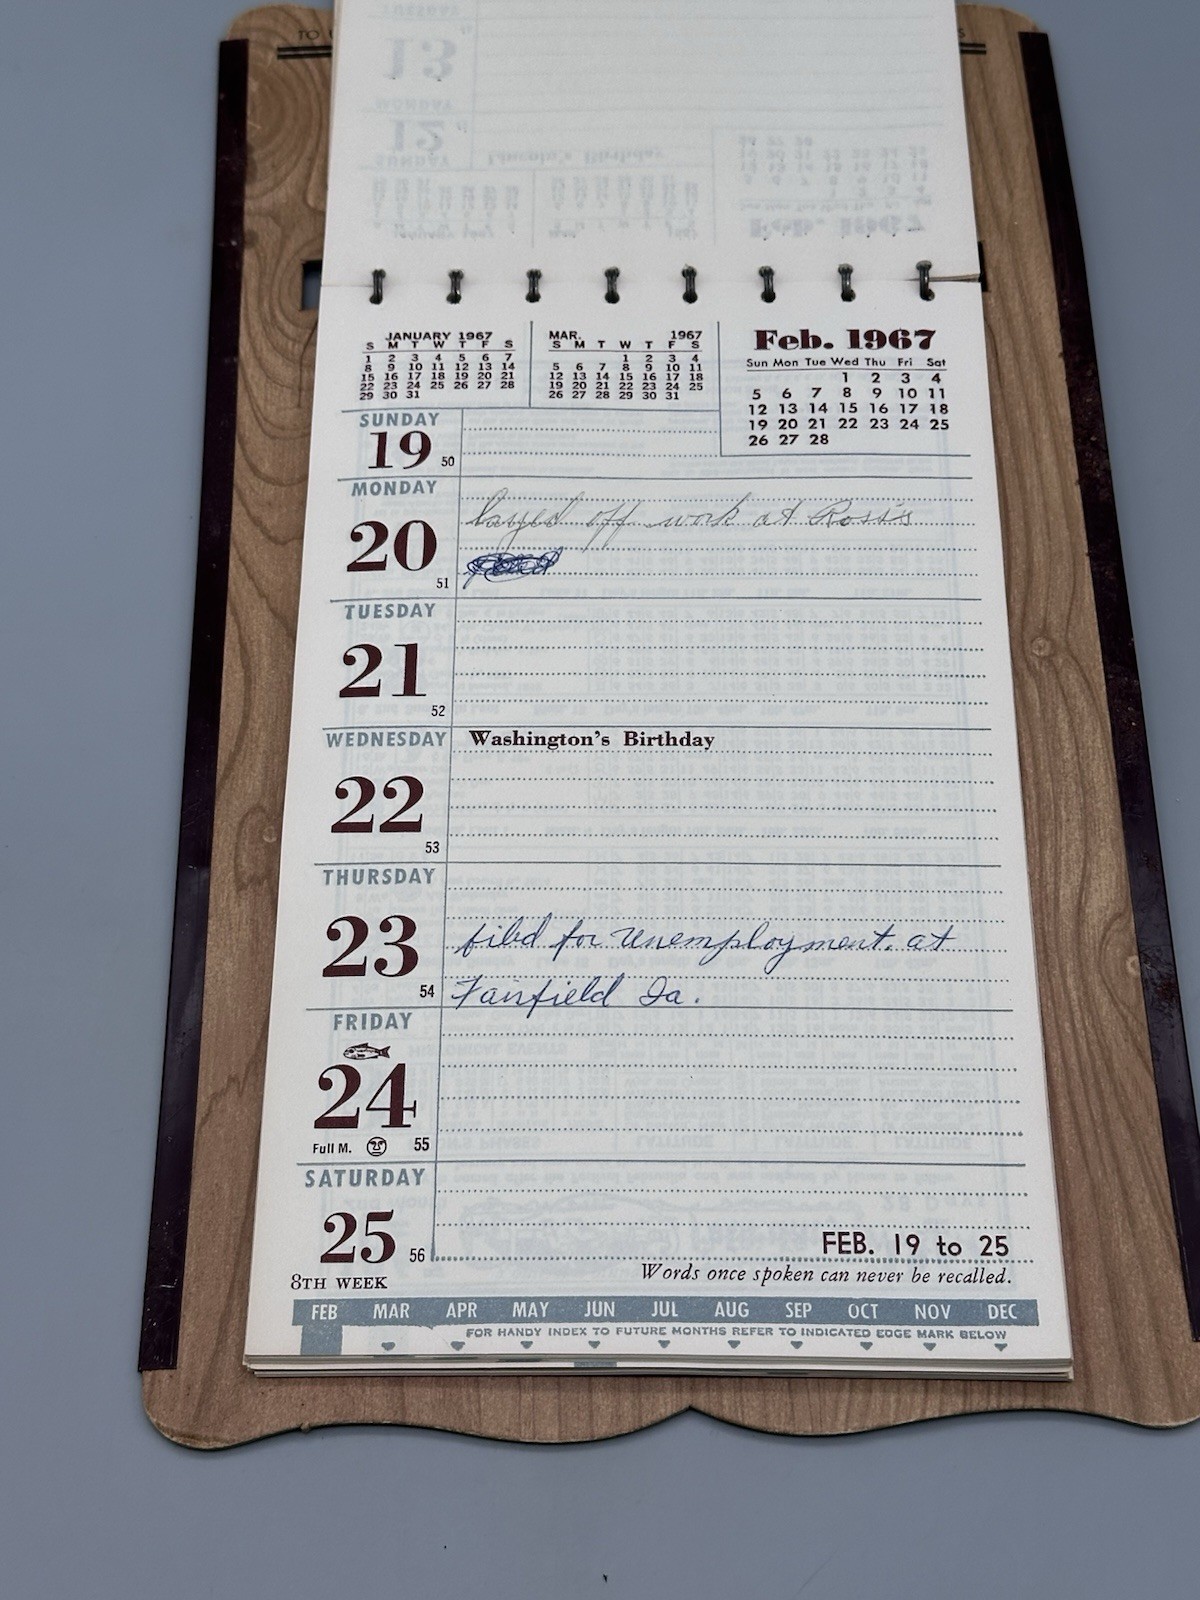 JANUARY 1967
S M T W T F S
1 2 3 4 5 6 7
8 9 10 11 12 13 14
15 16 17 18 19 20 21
22 23 24 25 26 27 28
29 30 31
MAR. 1967
S M T W T F S
1 2 3 4
5 6 7 8 9 10 11
12 13 14 15 16 17 18
19 20 21 22 23 24 25
26 27 28 29 30 31
Feb. 1967
Sun Mon Tue Wed Thu Fri Sat
1 2 3 4
5 6 7 8 9 10 11
12 13 14 15 16 17 18
19 20 21 22 23 24 25
26 27 28
SUNDAY
19 50
MONDAY
20 51
layed off work at Ross's
TUESDAY
21 52
WEDNESDAY
22 53
Washington's Birthday
THURSDAY
23 54
filed for Unemployment. at
Fairfield Ia.
FRIDAY
24
Full M. 55
SATURDAY
25 56
8TH WEEK
FEB. 19 to 25
Words once spoken can never be recalled.
FEB MAR APR MAY JUN JUL AUG SEP OCT NOV DEC
FOR HANDY INDEX TO FUTURE MONTHS REFER TO INDICATED EDGE MARK BELOW